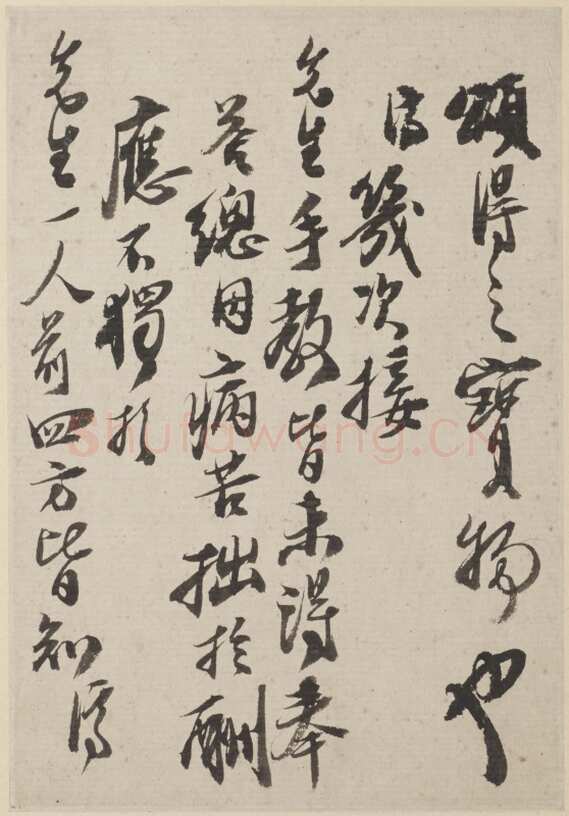 頌得之寶物也
濤幾次接
先生手教皆未得奉
答總因病苦拙於酬
應不獨於
先生一人前四方皆知濤
shufawang.CN